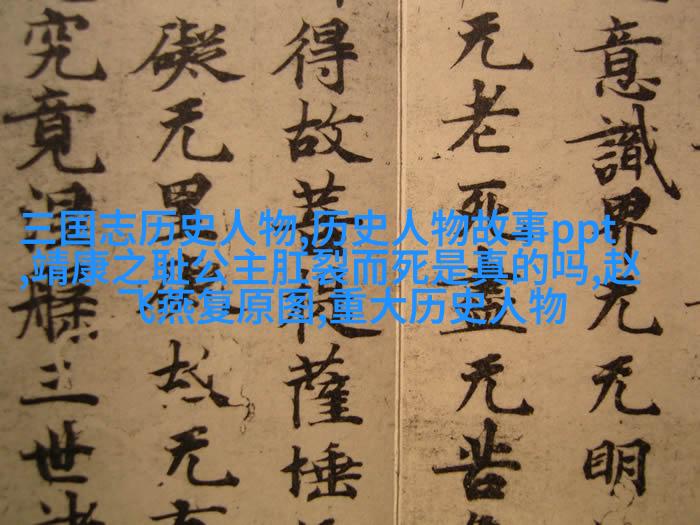 三国志历史人物,历史人物故事ppt
,靖康之耻公主肛裂而死是真的吗,赵
飞燕复原图,重大历史人物
意識界无无明
无老死盡无苦
得故菩提薩埵
礙无罣礙故无有
究竟涅槃三世諸